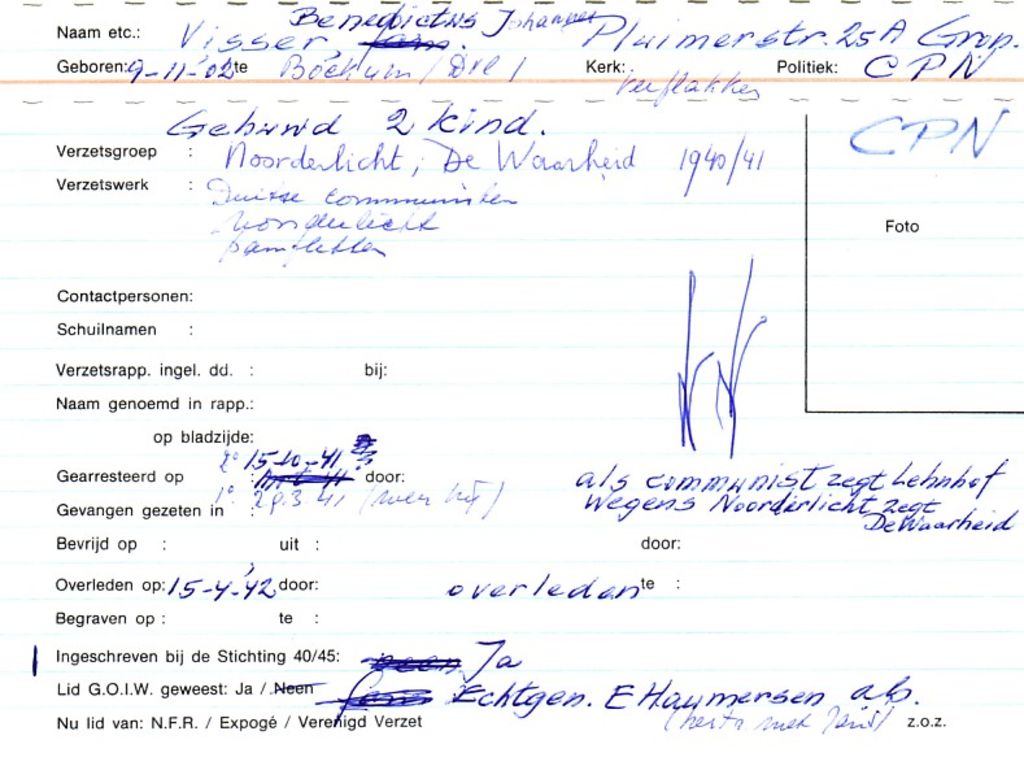 Benedictus Johannes
Naam etc.: Visser, Pluimerstr. 25A Gron.
Geboren: 9-11-'02 te Bochum / Kerk: Politiek: CPN
Gehuwd 2 kind. CPN
Verzetsgroep : Noorderlicht, De Waarheid 1940/41
Verzetswerk : Duitse communisten
Noorderlicht
pamfletten
Foto
Contactpersonen:
Schuilnamen :
Verzetsrapp. ingel. dd. : bij:
Naam genoemd in rapp.:
op bladzijde:
2° 15-10-41
Gearresteerd op : door: als communist zegt Lehnhof
1° 29.3 41 Wegens Noorderlicht zegt
Gevangen gezeten in : De Waarheid
Bevrijd op : uit : door:
Overleden op: 15-4-'42 door: overleden te :
Begraven op : te :
Ingeschreven bij de Stichting 40/45: Ja
Lid G.O.I.W. geweest: Ja / Neen Echtgen. E Haumersen
Nu lid van: N.F.R. / Expogé / Verenigd Verzet z.o.z.